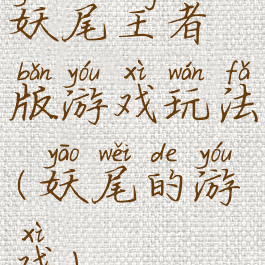 妖尾王者
bǎn yóu xì wán fǎ
版游戏玩法
yāo wěi de yóu
(妖尾的游
xì
戏)